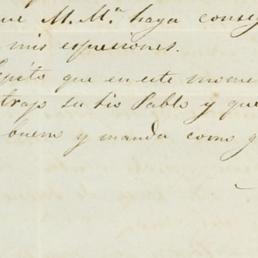 ue M. Mª haya conseg
mis espresiones.
pito que en este mome
trajo su tio Pablo y que
bueno y manda como g